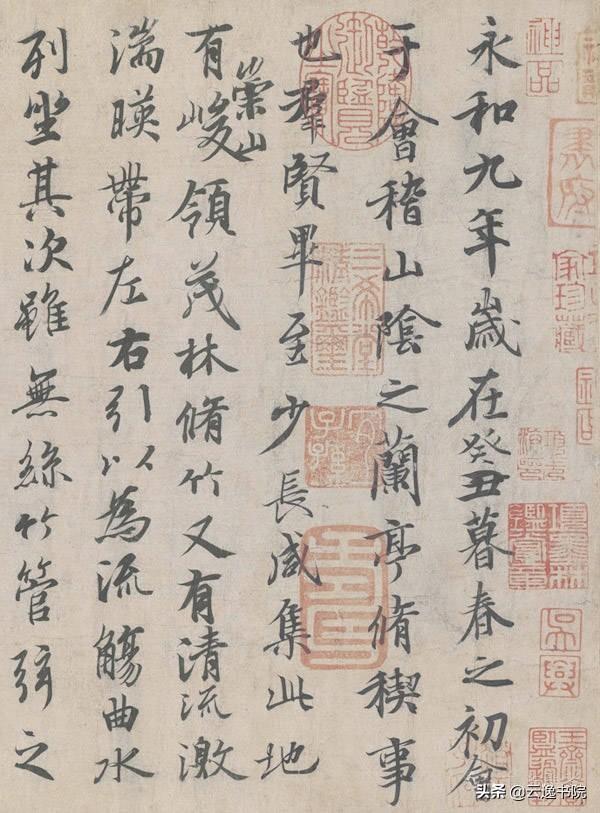 永和九年歲在癸丑暮春之初會
于會稽山陰之蘭亭脩稧事
也羣賢畢至少長咸集此地
有崇山峻領茂林脩竹又有清流激
湍暎帶左右引以為流觴曲水
列坐其次雖無絲竹管弦之
神品
家珍藏
三希堂精鑑璽
吳興
头条 @云逸书院